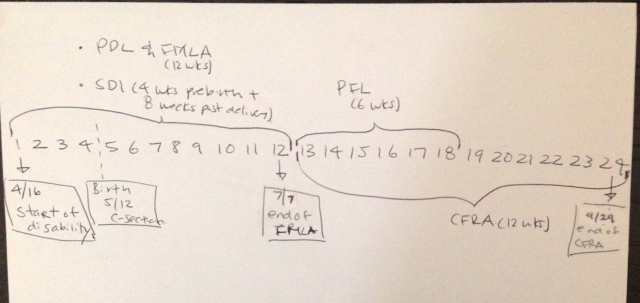 • PDL & FMLA
(12 wks)
• SDI (4 wks prebirth +
8 weeks post delivery)
PFL
(6 wks)
1 2 3 4 5 6 7 8 9 10 11 12 13 14 15 16 17 18 19 20 21 22 23 24
4/16
Start of
disability
Birth
5/12
C-section
7/7
end of
FMLA
CFRA (12 wks)
9/29
end of
CFRA